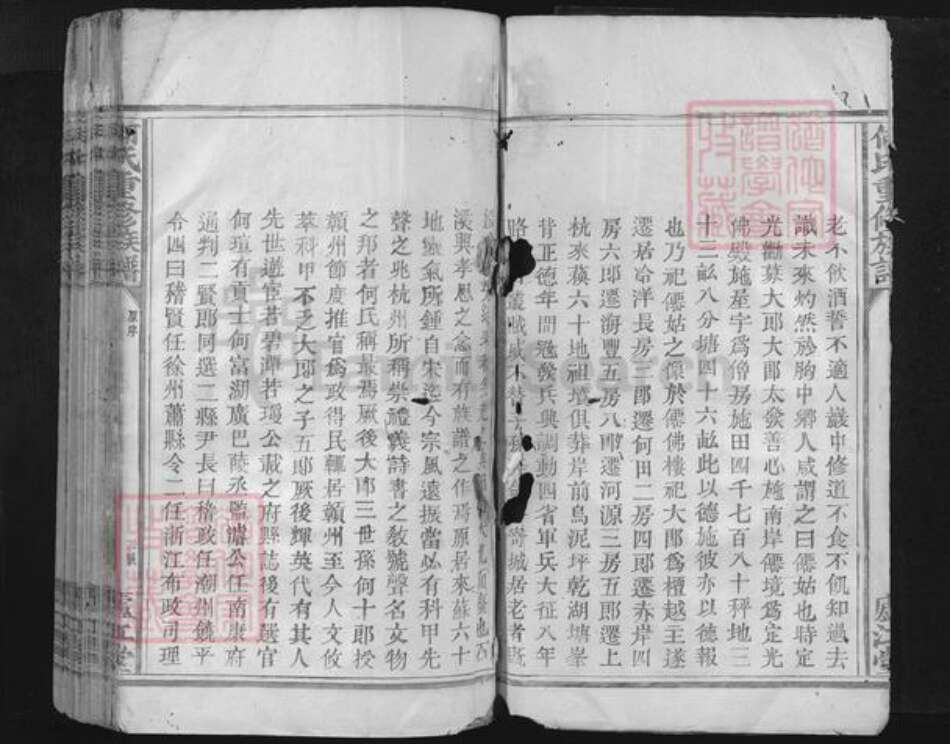 何氏重修族譜
廬江堂
老不飲酒誓不適人議中修道不食不飢知過去
識未來灼然於胸中鄉人咸謂之曰僊姑也時定
光勸募大郎大郎太發善心施南岸僊境爲定光
佛殿施屋宇爲僧房施田四千七百八十秤地三
十三畝八分塘四十六畝此以德施彼亦以德報
也乃祀僊姑之像於僊佛樓祀大郎爲檀越王遂
遷居冷洋長房三郎遷何田二房四郎遷赤岸四
房六郎遷海豐五房八郎遷河源三房五郎遷上
杭來蘓六十地祖墳俱葬岸前烏泥坪乾湖塘峯
背正德年間寇發兵興調動四省軍兵大征八年
路 賊 城居老者既
漢興孝思之念而有族譜之作焉原居來蘇六十
地靈氣所鍾自宋迄今宗風遠振當必有科甲先
聲之兆杭州所稱崇禮義詩書之敎號聲名文物
之邦者何氏稱最焉厥後大郎三世孫何十郎授
贛州節度推官爲政得民輝居贛州至今人文攸
萃科甲不乏大郎之子五郎厥後輝英代有其人
先世遊宦若碧潭若瑗公載之府縣誌後有選官
何瑄有貢士何富湖廣巴陵丞監濤公任南康府
通判二賢郎同選二縣尹長曰稽政任潮州饒平
令四曰稽賢任徐州蕭縣令二任浙江布政司理
何氏重修族譜
原序
廬江堂